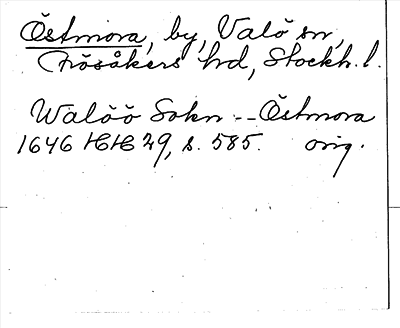 Östmora, by, Valö sn,
Frösåkers hd, Stockh. l.
Walöö Sokn -- Östmora
1646 HH 29, s. 585. orig.